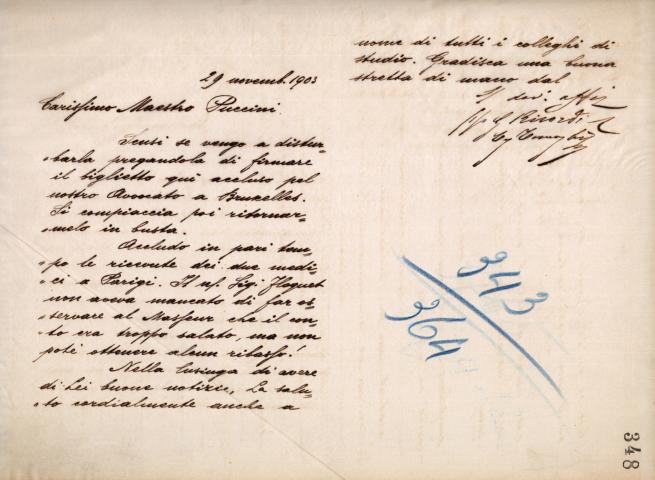 29 novemb. 1903
Carissimo Maestro Puccini.
Scusi se vengo a distur=
=barla pregandola di firmare
il biglietto quì accluso pel
nostro Avvocato a Bruxelles.
Si compiaccia poi ritornar=
=melo in busta.
Accludo in pari tem=
=po le ricevute dei due medi=
=ci a Parigi. Il ns/ Sigr Floquet
non aveva mancato di far os=
=servare al Masseur che il con=
=to era troppo salato, ma non
potè ottenere alcun ribasso!
Nella lusinga di avere
di Lei buone notizie, La salu=
=to cordialmente anche a
nome di tutti i colleghi di
studio. Gradisca una buona
stretta di mano dal
devo. affmo
G. Ricordi
343
364
348